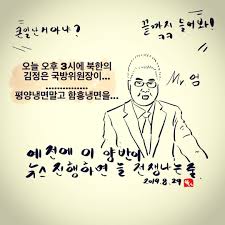 큰일난거아냐?
끝까지 들어봐!
ㅋㅋ
오늘 오후 3시에 북한의
김정은 국방위원장이...
..............
평양냉면말고 함흥냉면을...
Mr 엄
예전에 이 양반이
뉴스 진행하면 늘 전쟁나는줄.
2019.8.29